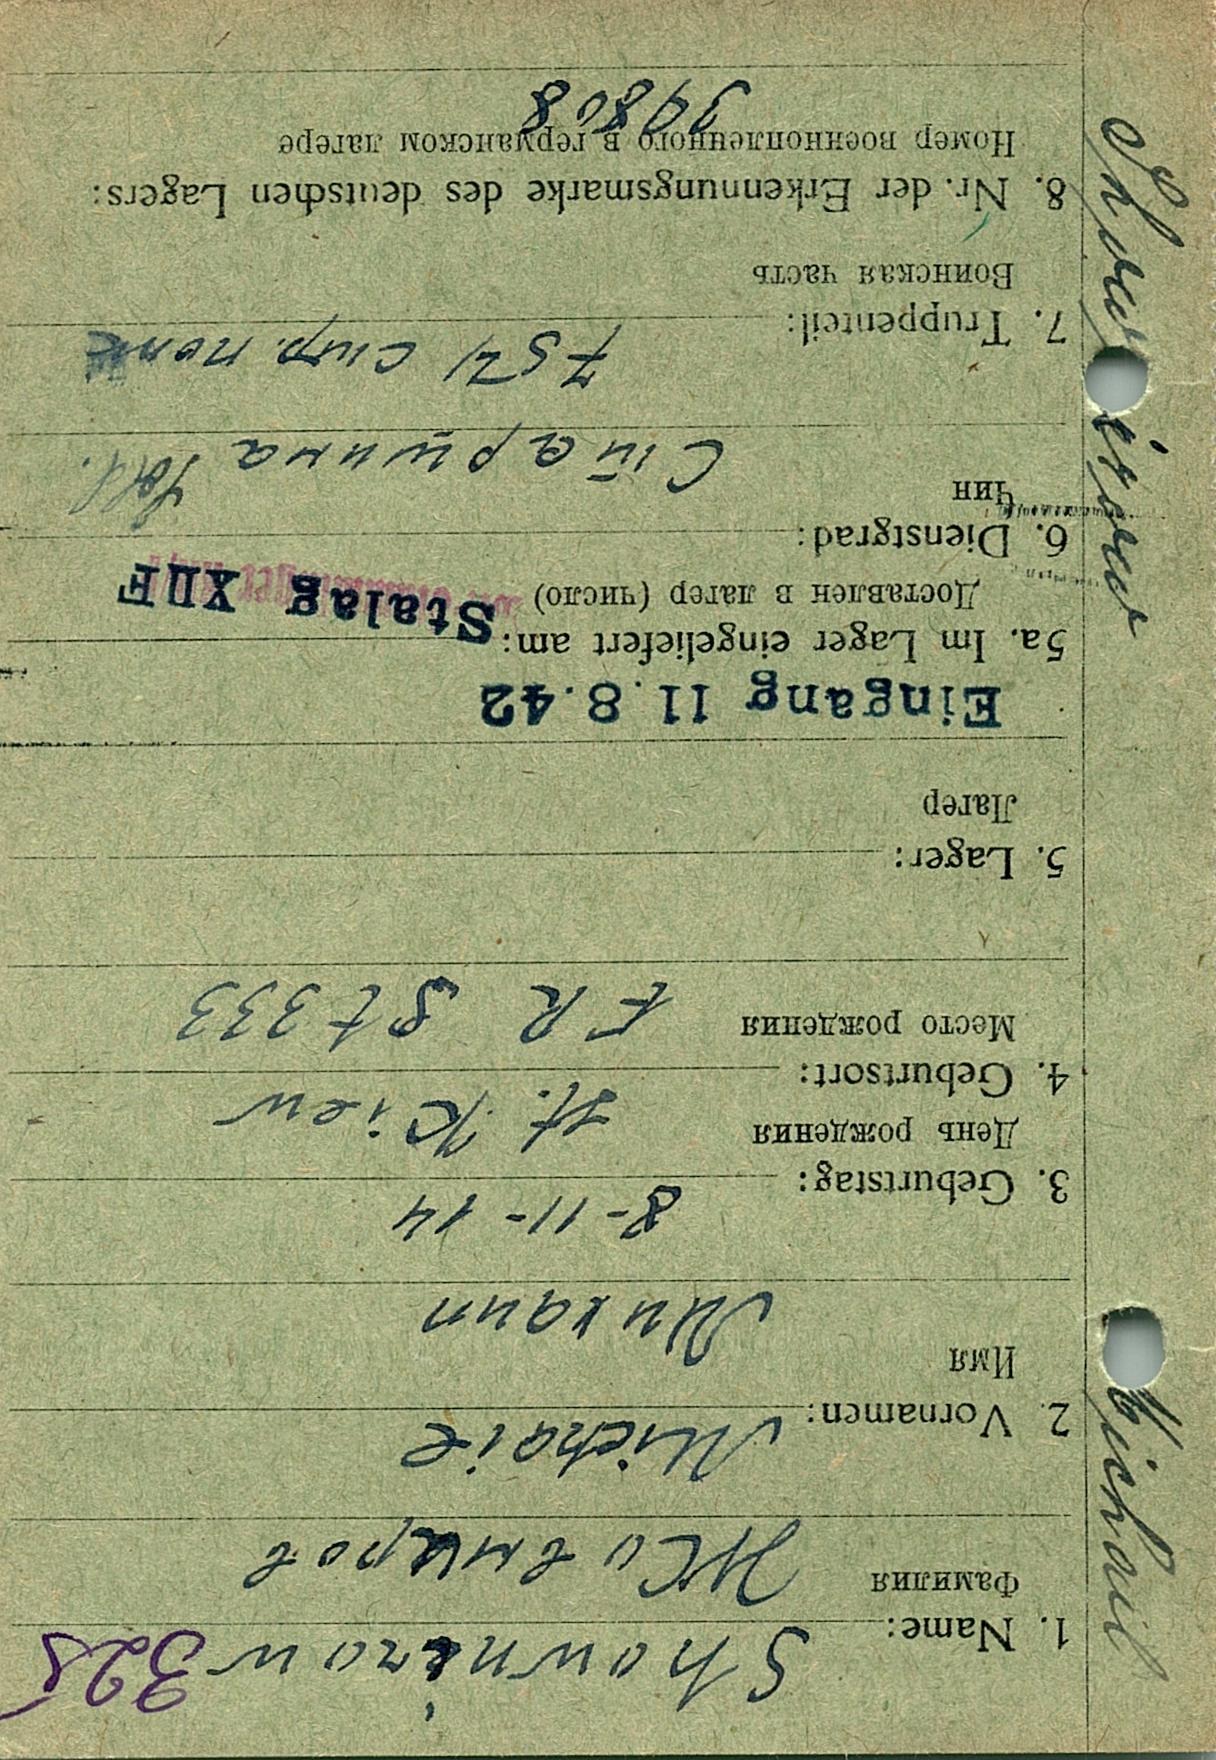 325
1. Name: Shownirow
Фамилия Жовниров
2. Vornamen: Michail
Имя Михаил
3. Geburtstag: 8-11-14
День рождения
4. Geburtsort: st. Kiew
Место рождения FR St 333
5. Lager:
Лагер
Eingang 11.8.42
5a. Im Lager eingeliefert am: Stalag XII F
Доставлен в лагер (число)
6. Dienstgrad:
Чин Старшина
7. Truppenteil: 752 стр. полк
Воинская часть
8. Nr. der Erkennungsmarke des deutschen Lagers:
Номер военнопленного в германском лагере
39808
Michail